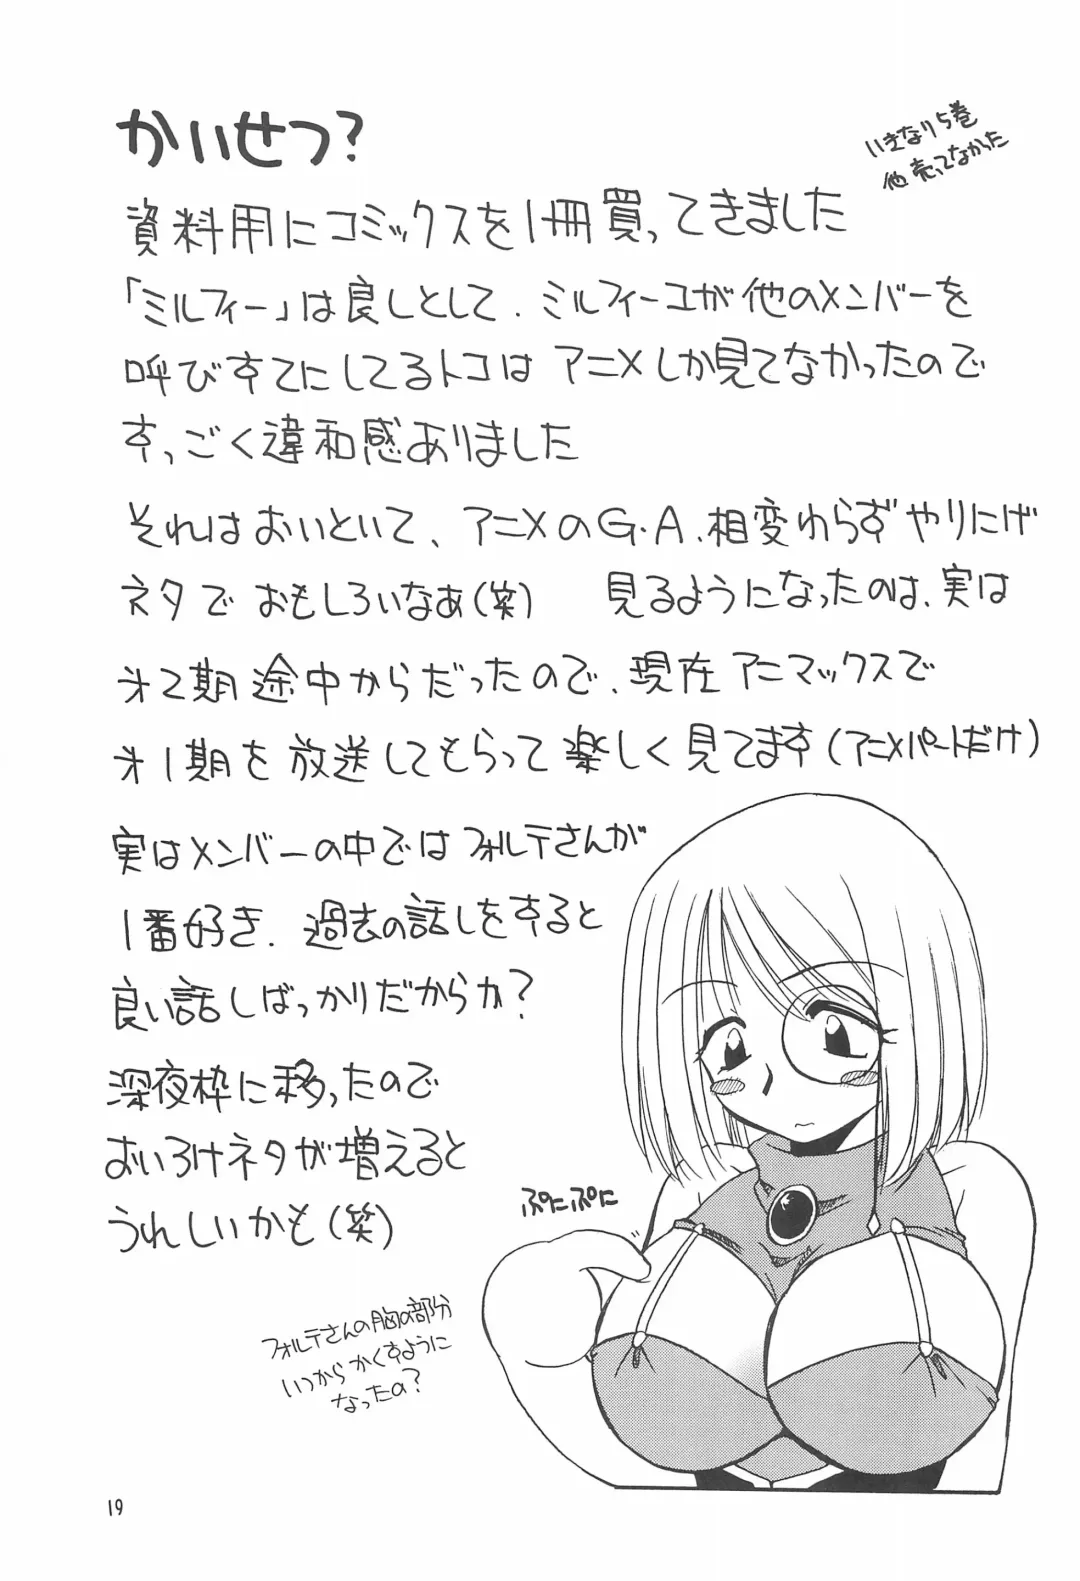 かいせつ?
いきなり5巻
他売ってなかった
資料用にコミックスを1冊買ってきました
「ミルフィー」は良しとして、ミルフィーユが他のメンバーを
呼びすてにしてるトコは アニメしか見てなかったので
すっごく違和感ありました
それはおいといて、アニメのG・A、相変わらずやりにげ
ネタで おもしろいなぁ(笑) 見るようになったのは、実は
才2期途中からだったので、現在アニマックスで
才1期を放送してもらって楽しく見てます(アニメパートだけ)
実はメンバーの中ではフォルテさんが
1番好き、過去の話しをすると
良い話しばっかりだからカ?
深夜枠に移ったので
おいろけネタが増えると
うれしいかも(笑)
ぷにぷに
フォルテさんの胸の部分
いつからかくすように
なったの?
19